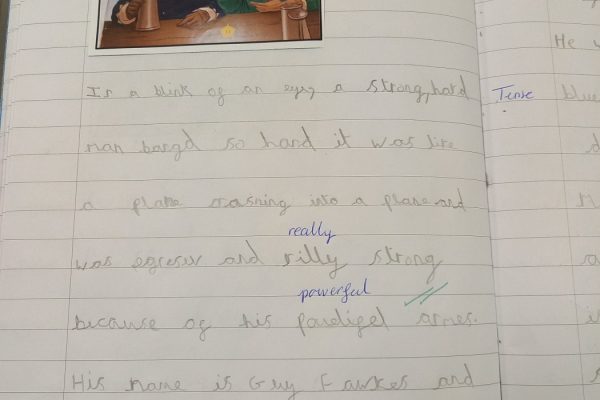 He w
In a blink of an eye, a strong, hard
Tense
blue
man bargd so hard it was like
d
a plane crashing into a plane and
really
was egresev and rilly strong
a
powerful
because of his paudigel armes.
i
His name is Guy Fawkes and